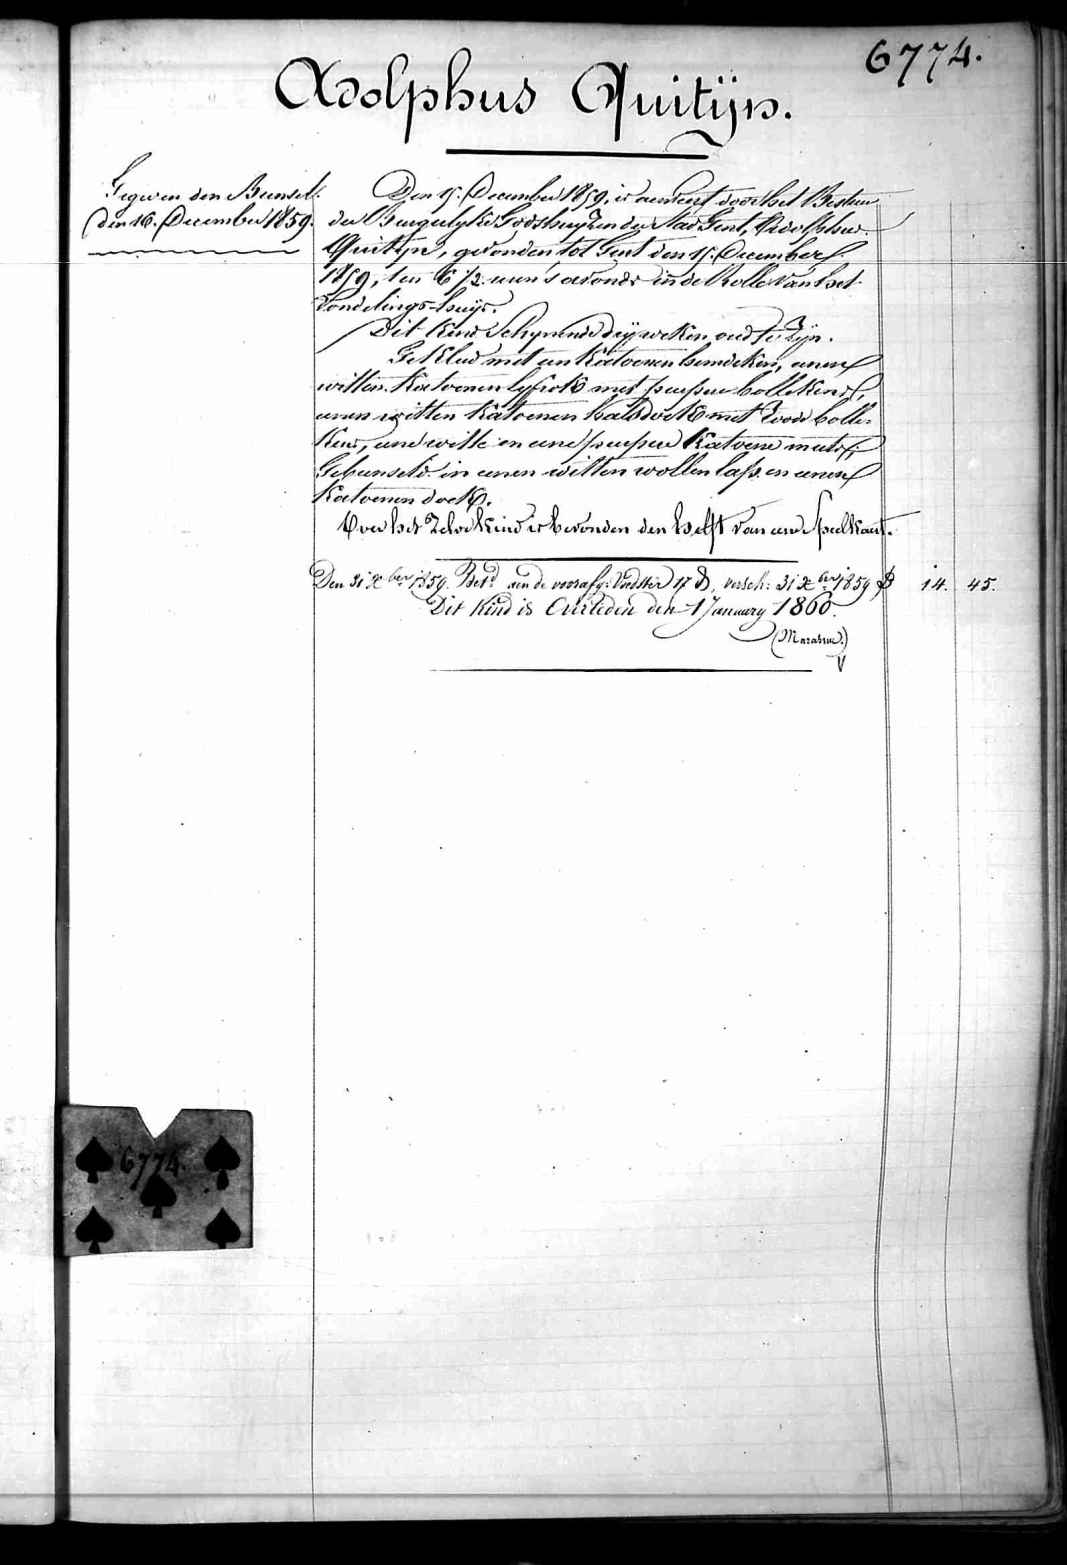 6774.
Adolphus Quitijn.
Gegeven den Bunsel.
den 16. December 1859.
Den 15. December 1859, is aenveert door het Bestuer
der Burgerlyke Godshuyzen der Stad Gent, Adolphus
Quitijn, gevonden tot Gent den 15. December
1859, ten 6 1/2 uren 's avonds in de Rolle van het
Vondelings-huys.
Dit kind schynende dry weken oud te zyn.
Gekleed met een katoenen hemdeken, eenen
witten katoenen lyfrok met purpere bollekens,
eenen witten katoenen halsdoek met roode bolle-
kens, eene witte en eene purpere katoene muts,
Gebunseld in eenen witten wollen lap en eenen
katoenen doek.
Over het zelve kind is bevonden den helft van eene Speelkaart.
Den 31 Xber 1859. Bet.d aen de voorafg: Voedster 17 D, versch: 31 Xber 1859 14. 45.
Dit Kind is Overleden den 1 January 1860.
(Marasme.)
6774.